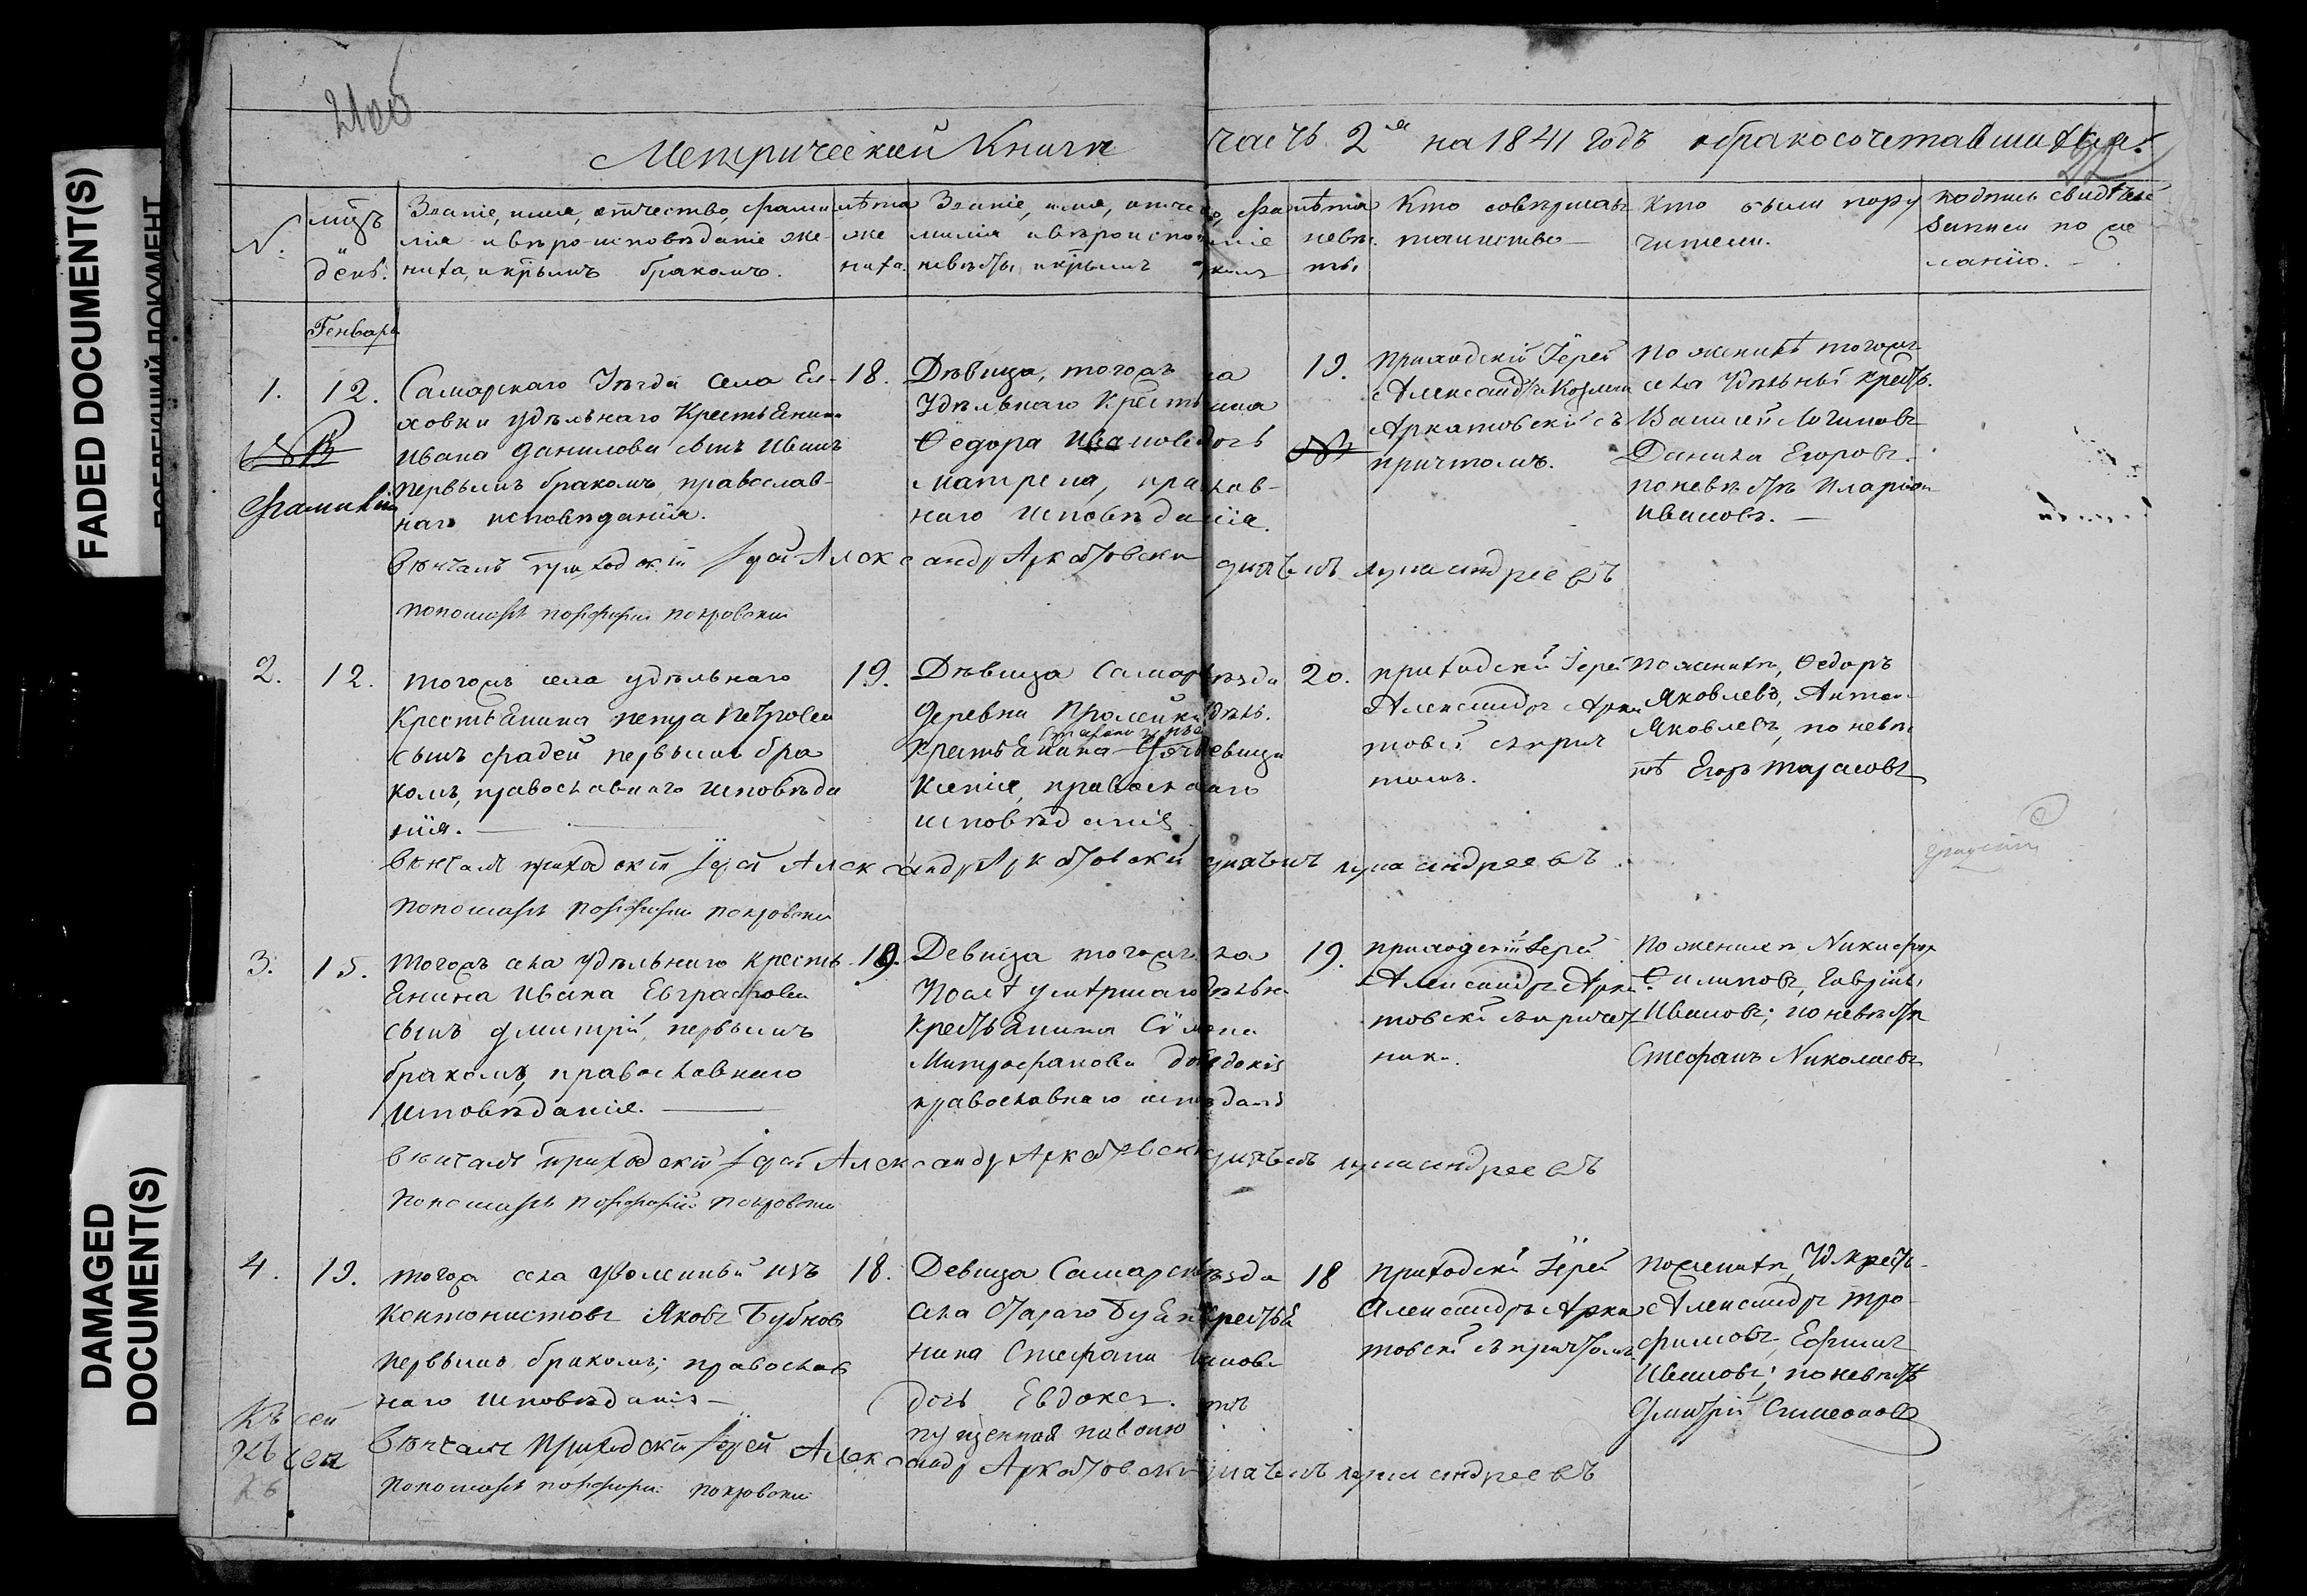 FADED DOCUMENT(S)
DAMAGED
DOCUMENT(S)
Метрической Книги часть 2я на 1841 годъ о бракосочетавшихся.
№.
мцъ
и
день.
Званіе, имя, отчество, фами
лія и вѣроисповѣданіе же-
ниха, и крымъ бракомъ.
лѣта
же
ниха.
Званіе, имя, отче
милія и вѣроиспо
невѣсты, и крымъ
лѣта
невѣс.
ты
Кто совершалъ
таинство
Кто были пору
чители.
подпись свидѣтел
записи по же
ланію.
Генварь
1.
12.
Самарскаго Уѣзда села Ел-
ховки удѣльнаго Крестьянина
Ивана Данилова сынъ Иванъ
первымъ бракомъ, православ-
наго исповѣданія.
18.
Дѣвица, тогожъ
Удѣльнаго Крестьянина
Ѳедора Иванова дочь
Матрена, пра слав-
наго исповѣданія.
19.
приходскій Іерей
Александръ
Аркатовскій съ
причтомъ.
По женихѣ тогожъ
села Удѣльный крест.
Василей Логиновъ
Данила Егоровъ.
по невѣстѣ Иларіон
Ивановъ.
вѣнчалъ приходскій Іерей Александр Аркатовски дьячекъ лука андреевъ
пономарь порфирій покровски
2.
12.
тогожъ села удѣльнаго
Крестьянина петра Петрова
сынъ фадей первымъ бра
комъ, православнаго исповѣда
нія.
19.
Дѣвица Самар уѣзда
деревни
крестьянина
Ксенія, православнаго
исповѣданія
20.
приходскій Іерей
Александръ Арка
товскій съ прич
томъ.
По женихѣ, Ѳедоръ
Яковлевъ, Антон
Яковлевъ, по невѣс
тѣ Егоръ Тарасовъ
вѣнчалъ приходскій Іерей Александр Аркатовский дьячекъ лука андреевъ
пономарь порфирій покровски
3.
15.
Тогожъ села удѣльнаго кресть
янина Ивана Евграфова
сынъ Дмитрій, первымъ
бракомъ, православнаго
исповѣданія.
19.
Девица тогожъ
После умершаго
крестьянина Сѵмена
Митрофанова
православнаго испо даніѧ
19.
приходскій Іерей
Александръ Арка
товскій съ причет
ники.
По женихѣ Никифор
Филиповъ, Гавріилъ
Ивановъ; по невѣстѣ
Стефанъ Николаевъ
вѣнчалъ приходскій Іерей Александр Аркатовски дьячекъ лука андреевъ
пономарь порфирій покровски
4.
19.
тогожъ села уволенный изъ
Кантонистовъ Яковъ Бубновъ
первымъ бракомъ; православ
наго исповѣданія
18.
Девица Самарск уѣзда
села Стараго Буяна крестья
нина Стефана
дочь Евдокея.
пущенная на волю
18
приходскій Іерей
Александръ Арка
товскій съ причтомъ.
По женихѣ, Уд. крест.
Александръ Тро-
фимовъ, Ефимъ
Ивановъ; по невѣстѣ
Дмитрій Симеоновъ
вѣнчалъ приходскій Іерей Александр Аркатовски дьячекъ лука андреевъ
пономарь порфирій покровски
къ сей
къ сей
къ